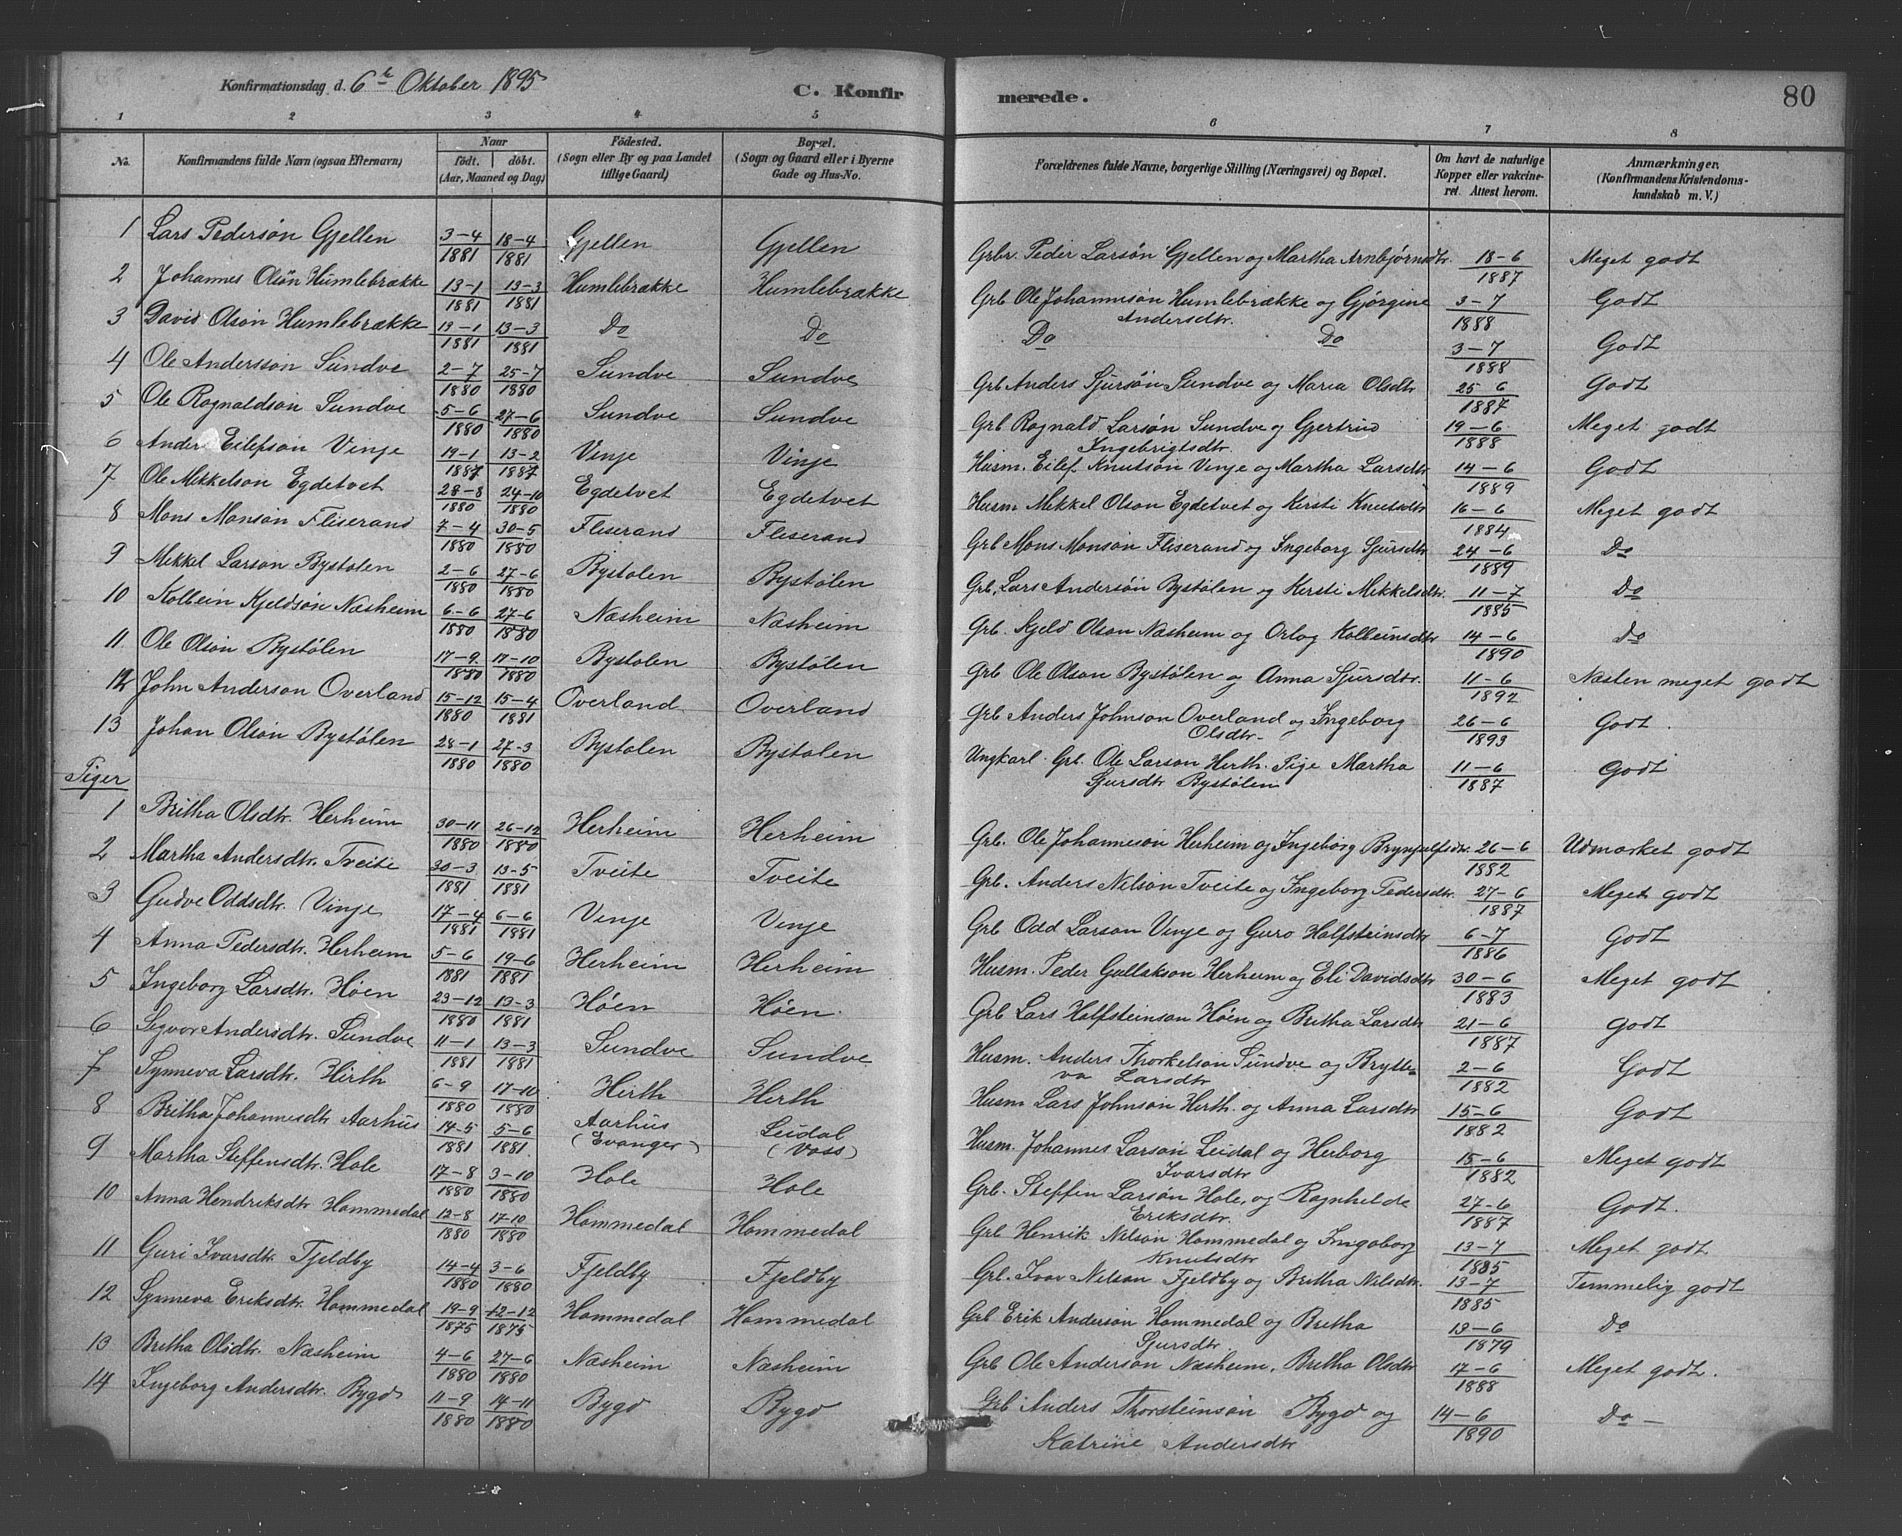 Konfirmationsdag d. 6te Oktober 1895
C. Konfirmerede.
80
1 2 3 4 5 6 7 8
No. Konfirmandens fulde Navn (ogsaa Efternavn) Naar født. døbt. (Aar, Maaned og Dag) Födested. (Sogn eller By og paa Landet tillige Gaard) Bopæl. (Sogn og Gaard eller i Byerne Gade og Hus-No. Forældrenes fulde Navne, borgerlige Stilling (Næringsvei) og Bopæl. Om havt de naturlige Kopper eller vakcineret. Attest herom. Anmærkninger. (Konfirmandens Kristendomskundskab m. V.)
1 Lars Pedersøn Gjellen 3-4 1881 18-4 1881 Gjellen Gjellen Grbr. Peder Larsøn Gjellen og Martha Arnbjørnsdtr. 18-6 1887 Meget godt
2 Johannes Olsøn Humlebrække 13-1 1881 13-3 1881 Humlebrække Humlebrække Grb Ole Johannesøn Humlebrække og Gjørgine Andersdtr. 3-7 1888 Godt
3 David Olsøn Humlebrække 13-1 1881 13-3 1881 Do Do Do Do 3-7 1888 Godt
4 Ole Anderssøn Sundve 2-7 1880 25-7 1880 Sundve Sundve Grb Anders Sjursøn Sundve og Maria Olsdtr 25-6 1887 Godt
5 Ole Rognaldsøn Sundve 5-6 1880 27-6 1880 Sundve Sundve Grb Rognald Larsøn Sundve og Gjertrud Ingebrigtsdtr 19-6 1888 Meget godt
6 Anders Eilefsøn Vinje 19-1 1887 13-2 1887 Vinje Vinje Husm. Eilef Knutsøn Vinje og Martha Larsdtr 14-6 1889 Godt
7 Ole Mikkelsøn Egdetvet 28-8 1880 24-10 1880 Egdetvet Egdetvet Husm Mikkel Olson Egdetvet og Kersti Knutsdtr 16-6 1884 Meget godt
8 Mons Monsøn Fliserand 7-4 1880 30-5 1880 Fliserand Fliserand Grb Mons Monsøn Fliserand og Ingeborg Sjursdtr 24-6 1889 Do
9 Mikkel Larsøn Bystølen 2-6 1880 27-6 1880 Bystølen Bystølen Grb. Lars Andersøn Bystølen og Kersti Mikkelsdtr. 11-7 1885 Do
10 Kolbein Kjeldsøn Næsheim 6-6 1880 27-6 1880 Næsheim Næsheim Grb. Kjeld Olson Næsheim og Orlog Kolbeinsdtr 14-6 1890 Do
11 Ole Olsøn Bystølen 17-9 1880 17-10 1880 Bystølen Bystølen Grb Ole Olson Bystølen og Anna Sjursdtr. 11-6 1892 Næsten meget godt
12 John Anderson Overland 15-12 1880 15-4 1881 Overland Overland Grb Anders Johnson Overland og Ingeborg Olsdtr. 26-6 1893 Godt.
13 Johan Olsøn Bystølen 28-1 1880 27-3 1880 Bystølen Bystølen Ungkarl. Grb. Ole Larson Herth. Pige Martha Sjursdtr Bystølen 11-6 1887 Godt
Piger
1 Britha Olsdtr. Herheim 30-11 1880 26-12 1880 Herheim Herheim Grb. Ole Johannesøn Herheim og Ingeborg Brynjulfsdtr. 26-6 1882 Udmærket godt
2 Martha Andersdtr. Tveite 30-3 1881 13-5 1881 Tveite Tveite Grb. Anders Nilsøn Tveite og Ingeborg Pedersdtr. 27-6 1887 Meget godt
3 Gudve Oddsdtr. Vinje 17-4 1881 6-6 1881 Vinje Vinje Grb Odd Larsøn Vinje og Guro Halfsteinsdtr 6-7 1886 Godt
4 Anna Pedersdtr. Herheim 5-6 1881 19-6 1881 Herheim Herheim Husm. Peder Gullakson Herheim og Eli Davidsdtr 30-6 1883 Meget godt
5 Ingeborg Larsdtr. Høen 23-12 1880 13-3 1881 Høen Høen. Grb Lars Halfsteinsøn Høen og Britha Larsdtr 21-6 1887 Godt
6 Segvor Andersdtr. Sundve 11-1 1881 13-3 1881 Sundve Sundve Husm. Anders Thorkelson Sundve og Bryteva Larsdtr 2-6 1882 Godt
7 Synneva Larsdtr. Hirth 6-9 1880 17-10 1880 Herth Herth Husm Lars Johnsøn Herth. og Anna Larsdtr 15-6 1882 Godt
8 Britha Johannesdtr Aarhus 14-5 1881 5-6 1881 Aarhus (Evanger) Leidal (Voss) Husm. Johannes Larsøn Leidal og Herborg Ivarsdtr 15-6 1882 Meget godt
9 Martha Steffensdtr. Hole 17-8 1880 3-10 1880 Hole Hole Grb. Steffen Larsøn Hole, og Ragnhilde Eriksdtr. 27-6 1887 Godt.
10 Anna Hendriksdtr Hommedal 12-8 1880 17-10 1880 Hommedal Hommedal Grb Henrik Nilsøn Hommedal og Ingeborg Knutsdtr 13-7 1885 Meget godt
11 Guri Ivarsdtr. Fjeldby 14-4 1880 3-6 1880 Fjeldby Fjeldby Grb. Ivar Nilsøn Fjeldby og Britha Nilsdtr. 13-7 1885 Temmelig godt
12 Synneva Eriksdtr. Hommedal 19-9 1875 12-12 1875 Hommedal Hommedal Grb Erik Andersøn Hommedal og Britha Sjursdtr. 13-6 1879 Do
13 Britha Olsdtr. Næsheim 4-6 1880 27-6 1880 Næsheim Næsheim Grb Ole Anderson Næsheim, Britha Olsdtr 17-6 1888 Meget godt.
14 Ingeborg Andersdtr. Bygd 11-9 1880 14-11 1880 Bygd Bygd Grb Anders Thorsteinsøn Bygd og Katrine Andersdtr 14-6 1890 Do